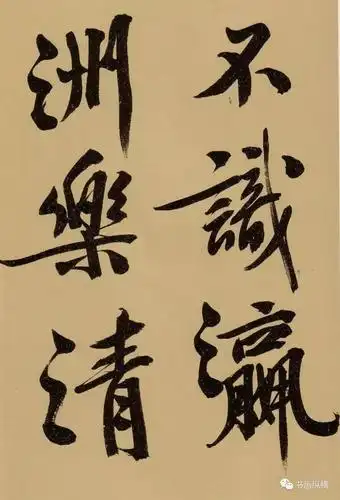 不識瀛
洲樂清
书画纵横